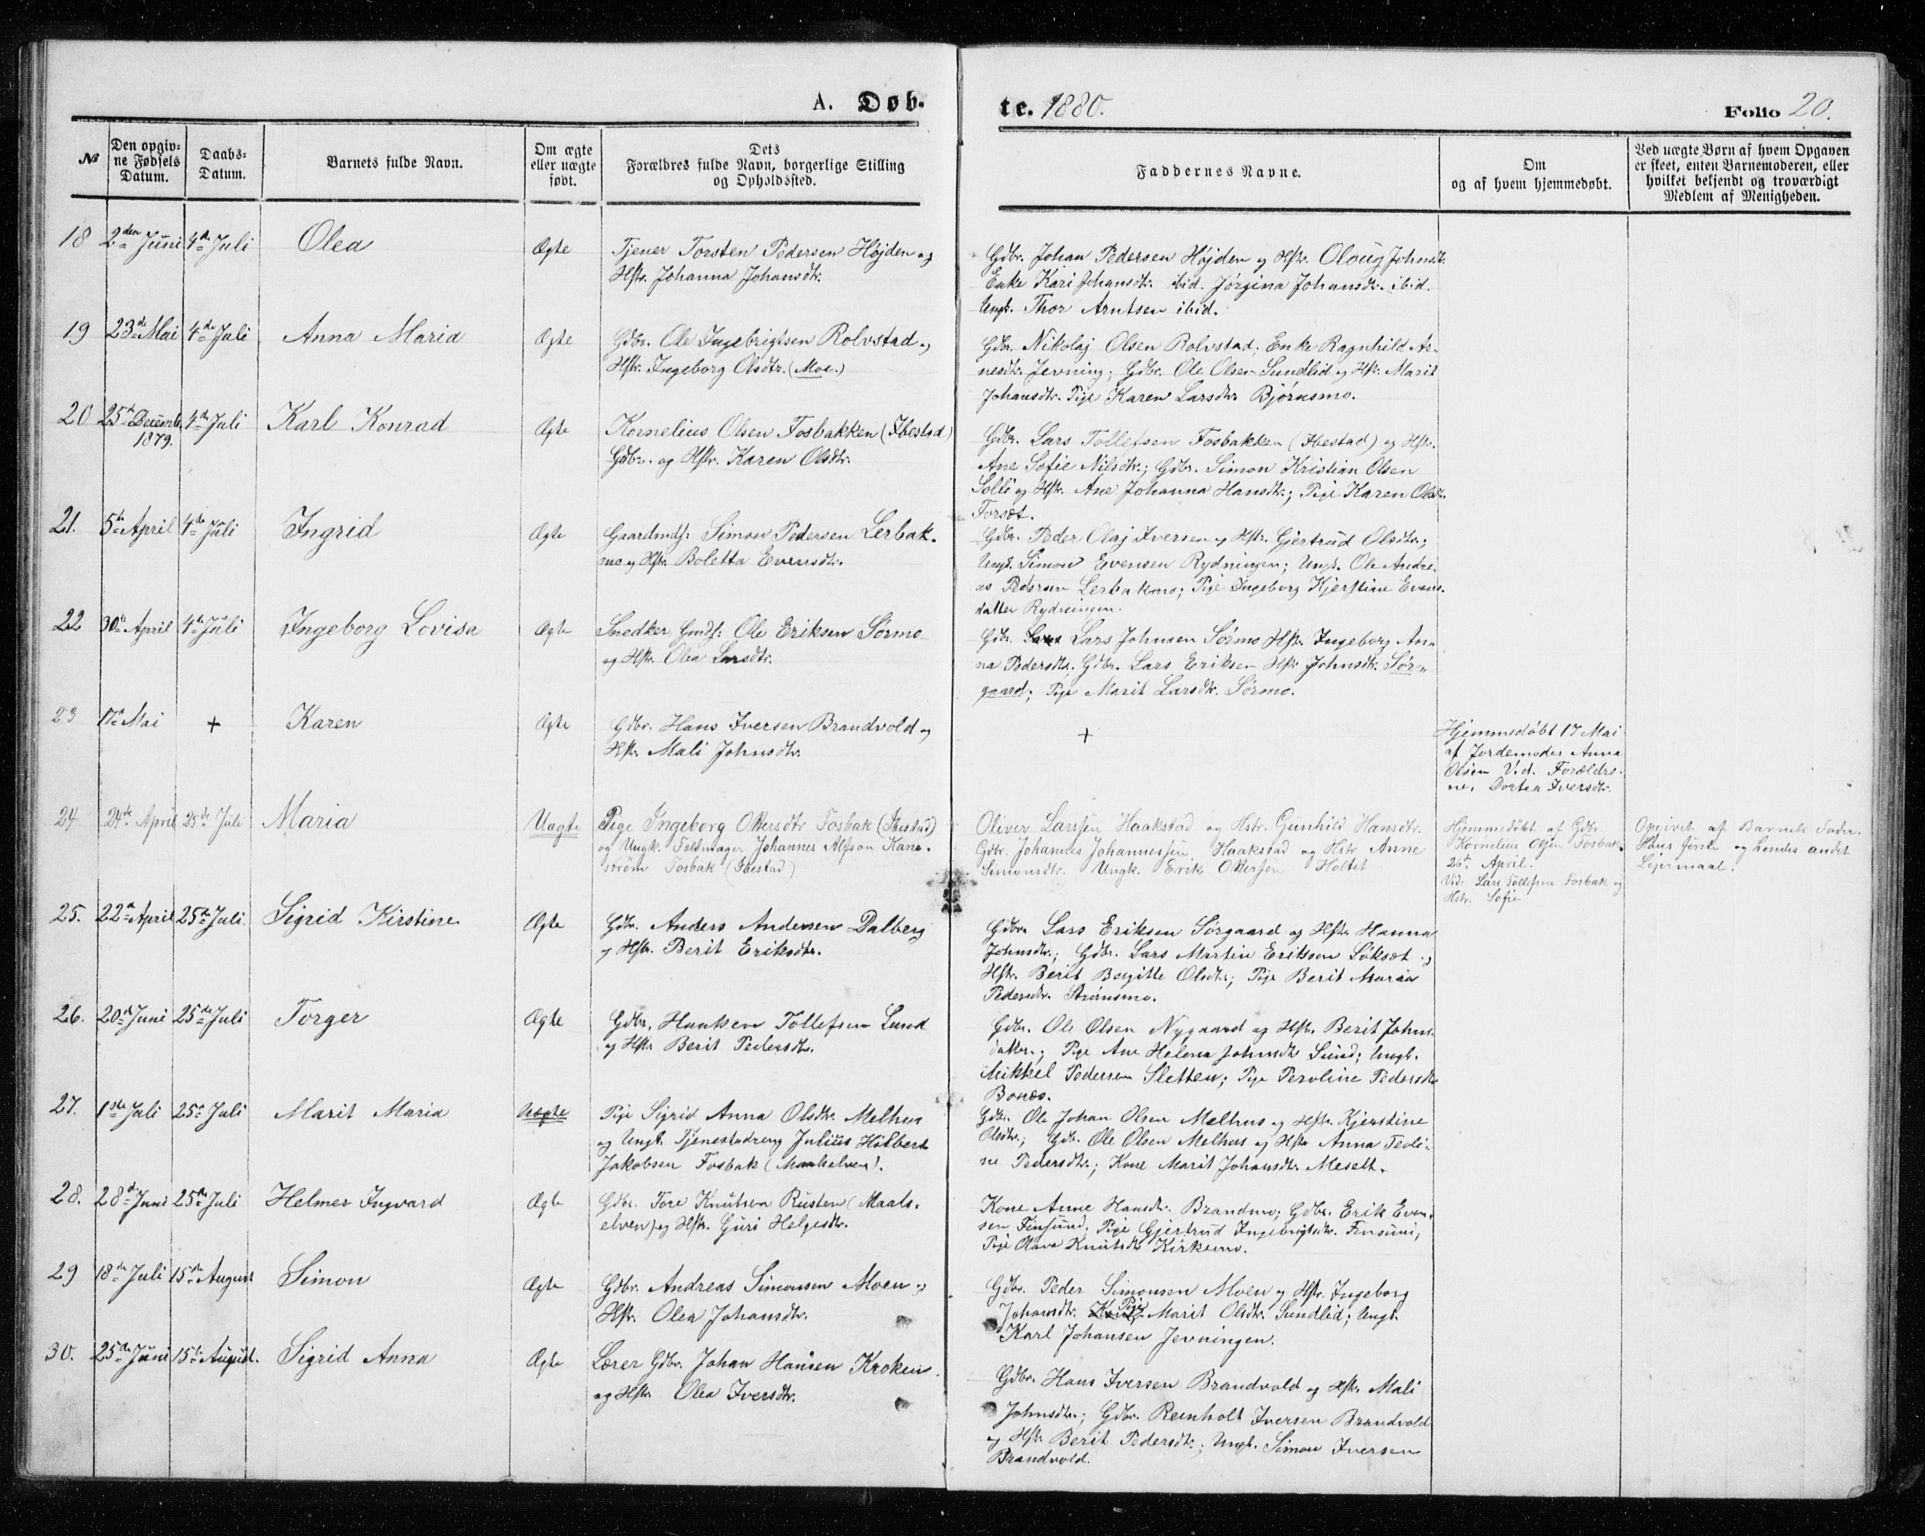 A. Døb-
te. 1880.
Folio 20.
№
Den opgiv-
ne Fødsels
Datum.
Daabs-
Datum.
Barnets fulde Navn.
Om ægte
eller uægte
født.
Dets
Forældres fulde Navn, borgerlige Stilling
og Opholdssted.
Faddernes Navne.
Om
og af hvem hjemmedøbt.
Ved uægte Børn af hvem Opgaven
er skeet, enten Barnemoderen, eller
hvilket bekjendt og troværdigt
Medlem af Menigheden.
18 2den Juni 4de Juli Olea Ægte
Tjener Torsten Pedersen Højden og
Hstr. Johanna Johansdtr.
Gdbr. Johan Pedersen Højden og Hstr. Oloug Johnsdtr.
Enke Kari Johansdtr. ibid. Jørgina Johansdtr. ibid.
Ungk. Thor Arntsen ibid.
19 23de Mai 4de Juli Anna Maria Ægte
Gdbr. Ole Ingebrigtsen Rolvstad og
Hstr. Ingeborg Olsdtr. (Moe.)
Gdbr. Nikolaj Olsen Rolvstad; Enke Ragnhild Ar-
nesdtr. Jevning; Gdbr. Ole Olsen Sundlid og Hstr. Marit
Johansdtr. Pige Karen Larsdtr Bjørnsmo.
20 25de Decemb. 1879. 4de Juli Karl Konrad Ægte
Kornelius Olsen Fosbakken (Ibestad)
Gdbr. og Hstr. Karen Olsdtr.
Gdbr. Lars Tollefsen Fosbakken (Ibestad) og Hstr.
Ane Sofie Nilsdtr.; Gdbr. Simon Kristian Olsen
Solli og Hstr. Ane Johanna Hansdtr.; Pige Karen Olsdtr.
Forsæt.
21. 5te April 4de Juli Ingrid Ægte
Gaardmdf. Simon Pedersen Lerbak-
mo og Hstr. Boletta Evensdtr.
Gdbr. Peder Olaj Iversen og Hstr. Gjertrud Olsdtr.;
Ungk. Simon Evensen Rydningen; Ungk. Ole Andre-
as Pedersen Lerbakmo; Pige Ingeborg Kjerstine Evens-
datter Rydningen.
22 30te April 4de Juli Ingeborg Lovisa Ægte
Snedker Gmdf: Ole Eriksen Sørmo
og Hstr. Olea Larsdtr.
Gdbr. Lars Johnsen Sørmo Hstr. Ingeborg An-
na Pedersdtr. Gdbr. Lars Eriksen Hstr Johnsdtr. Sør-
gaard; Pige Marit Larsdtr. Sørmo.
23 17de Mai + Karen Ægte
Gdbr. Hans Iversen Brandvold og
Hstr. Mali Johnsdtr.
+
Hjemmedøbt 17 Mai
af Jordemoder Anna
Olsen Vid. Forældre-
ne, Dortea Iversdtr.
24 24de April 25de Juli Maria Uægte
Pige Ingeborg Ottersdtr Fosbak (Ibestad)
og Ungk. Johannes Kane-
strøm Fosbak (Ibestad)
Oliver Larssen Haakstad og Hstr. Gunhild Hansdtr.
Gdbr. Johannes Johannessen Haakstad og Hstr Anne
Simonsdtr. Ungk. Erik Ottersen Holtet
Hjemmedøbt af Gdbr
Kornelius Olsen Fosbak
26de April.
Vid: Lars Tollefsen Fosbak og
Hstr. Sofie
Opgivet af Barnets Fader
Hans første og hendes andet
Lejermaal.
25. 22de April 25de Juli. Sigrid Kirstine Ægte
Gdbr. Anders Andersen Dalberg
og Hstr. Berit Eriksdtr.
Gdbr. Lars Eriksen Sørgaard og Hstr. Hanna
Johnsdtr.; Gdbr. Lars Martin Eriksen Løksæt og
Hstr. Berit Bergitte Olsdtr.; Pige Berit Maria
Pedersdtr. Strømsmo.
26. 20de Juni 25de Juli Torger Ægte
Gdbr. Haaken Tollefsen Lund
og Hstr Berit Pedersdtr.
Gdbr. Ole Olsen Nygaard og Hstr. Berit Johns-
datter; Pige Ane Helena Johnsdtr Lund; Ungk.
Mikkel Pedersen Sletten; Pige Peroline Pedersdtr
Bonæs.
27. 1ste Juli 25de Juli Marit Maria Uægte
Pige Sigrid Anna Olsdtr. Melhus
og Ungk. Tjenestedreng Julius Hilbert
Jakobsen Fosbak (Maalselven).
Gdbr. Ole Johan Olsen Melhus og Hstr. Kjerstine
Olsdtr.; Gdb. Ole Olsen Melhus og Hstr Anna Peoli-
ne Pedersdtr.; Kone Marit Johansdtr. Meselt.
28. 28de Juni 25de Juli Helmer Ingvard Ægte
Gdbr. Tore Knutsen Rusten (Maals-
elven) og Hstr. Guri Helgesdtr.
Kone Anne Hansdtr. Brandmo; Gdbr. Erik Even-
sen Finsund, Pige Gjertrud Ingebrigtsdtr. Finsund,
Pige Olava Knutsdtr Kirkemo.
29 18de Juli 15de August Simon Ægte
Gdbr. Andreas Simonsen Moen og
Hstr. Olea Johansdtr.
Gdbr. Peder Simonsen Moen og Hstr. Ingeborg
Johansdtr. Pige Marit Olsdtr. Sundlid; Ungk.
Karl Johansen Jevningen.
30. 25de Juni 15de August. Sigrid Anna Ægte
Lærer Gdbr. Johan Hansen Kroken
og Hstr Olea Iversdtr.
Gdbr. Hans Iversen Brandvold og Hstr. Mali
Johnsdtr.; Gdbr. Reinholt Iversen Brandvold
og Hstr Berit Pedersdtr.; Ungk. Simon Iversen
Brandvold.